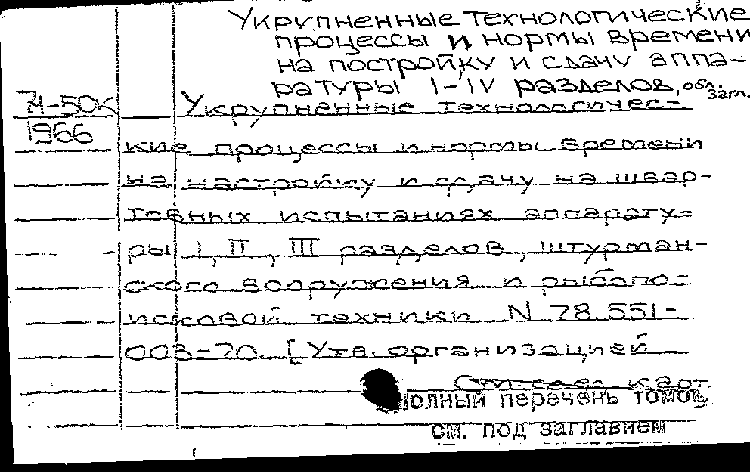 Укрупненные технологические
процессы и нормы времени
на постройку и сдачу аппа-
ратуры I-IV разделов, обл.
загл.
Укрупненные технологичес-
1966
кие процессы и нормы времени
на настройку и сдачу на швар-
товных испытаниях аппарату-
ры I, II, III разделов, штурман-
ского вооружения и рыбопо-
исковой техники N 78.551-
003-70. [Утв. организацией
полный перечень томов
см. под заглавием